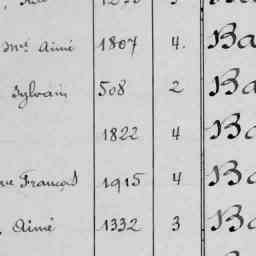 Mel Aimé 1807 4. Ba
Sylvain 508 2 Ba
1822 4 Ba
François 1915 4 Ba
Aimé 1332 3 Ba